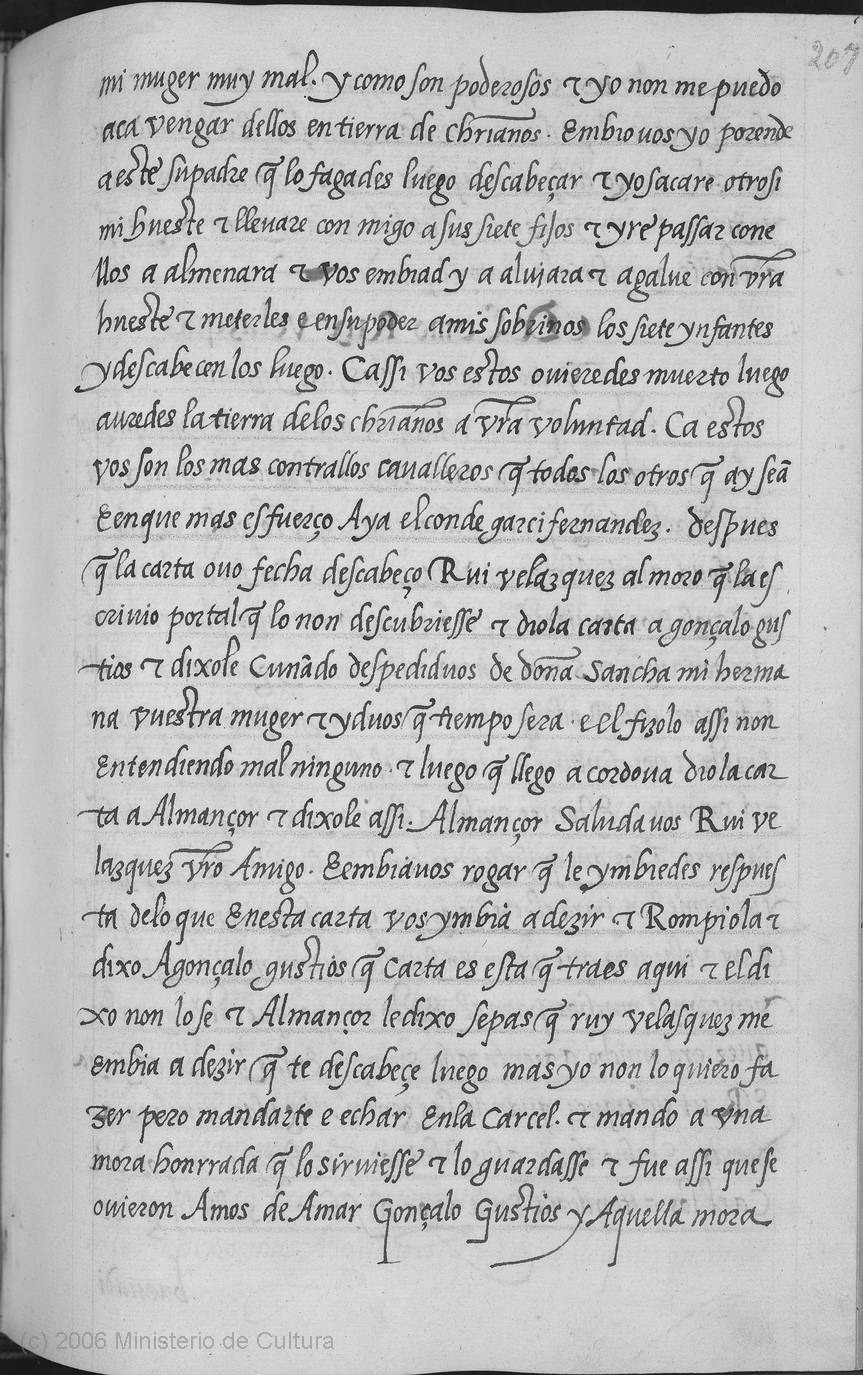 207
mi muger muy mal. y como son poderosos τ yo non me puedo
aca vengar dellos en tierra de chrianos. Embio uos yo porende
a este su padre q̃ lo fagades luego descabeçar τ yo sacare otrosi
mi hueste τ lleuare con migo a sus siete fijos τ yre passar cone
llos a almenara τ vos embiad y a aluiara τ a galue con vr̃a
hueste τ meterles e en su poder a mis sobrinos los siete ynfantes
y descabecen los luego. Ca ssi vos estos ouieredes muerto luego
auredes la tierra de los chrianos a vr̃a voluntad. Ca estos
vos son los mas contrallos caualleros q̃ todos los otros q̃ ay seã
E en que mas esfuerço Aya el conde garci fernandez. despues
q̃ la carta ouo fecha descabeço Rui velazquez al moro q̃ la es
criuio por tal q̃ lo non descubriesse τ dio la carta a gonçalo gus
tios τ dixole Cunãdo despedid uos de doña Sancha mi herma
na vuestra muger τ yd uos q̃ tiempo sera. e el fizolo assi non
Entendiendo mal ninguno. τ luego q̃ llego a cordoua dio la car
ta a Almançor τ dixole assi. Almançor Saluda uos Rui ve
lazquez vr̃o Amigo. E embia uos rogar q̃ le ymbiedes respues
ta de lo que En esta carta vos ymbia a dezir τ Rompiola τ
dixo A gonçalo gustios q̃ Carta es esta q̃ traes aqui τ el di
xo non lo se τ Almançor le dixo sepas q̃ ruy velasquez me
Embia a dezir q̃ te descabeçe luego mas yo non lo quiero fa
zer pero mandarte e echar En la Carcel. τ mando a vna
mora honrrada q̃ lo siruiesse τ lo guardasse τ fue assi que se
ouieron Amos de Amar Gonçalo Gustios y Aquella mora
(c) 2006 Ministerio de Cultura